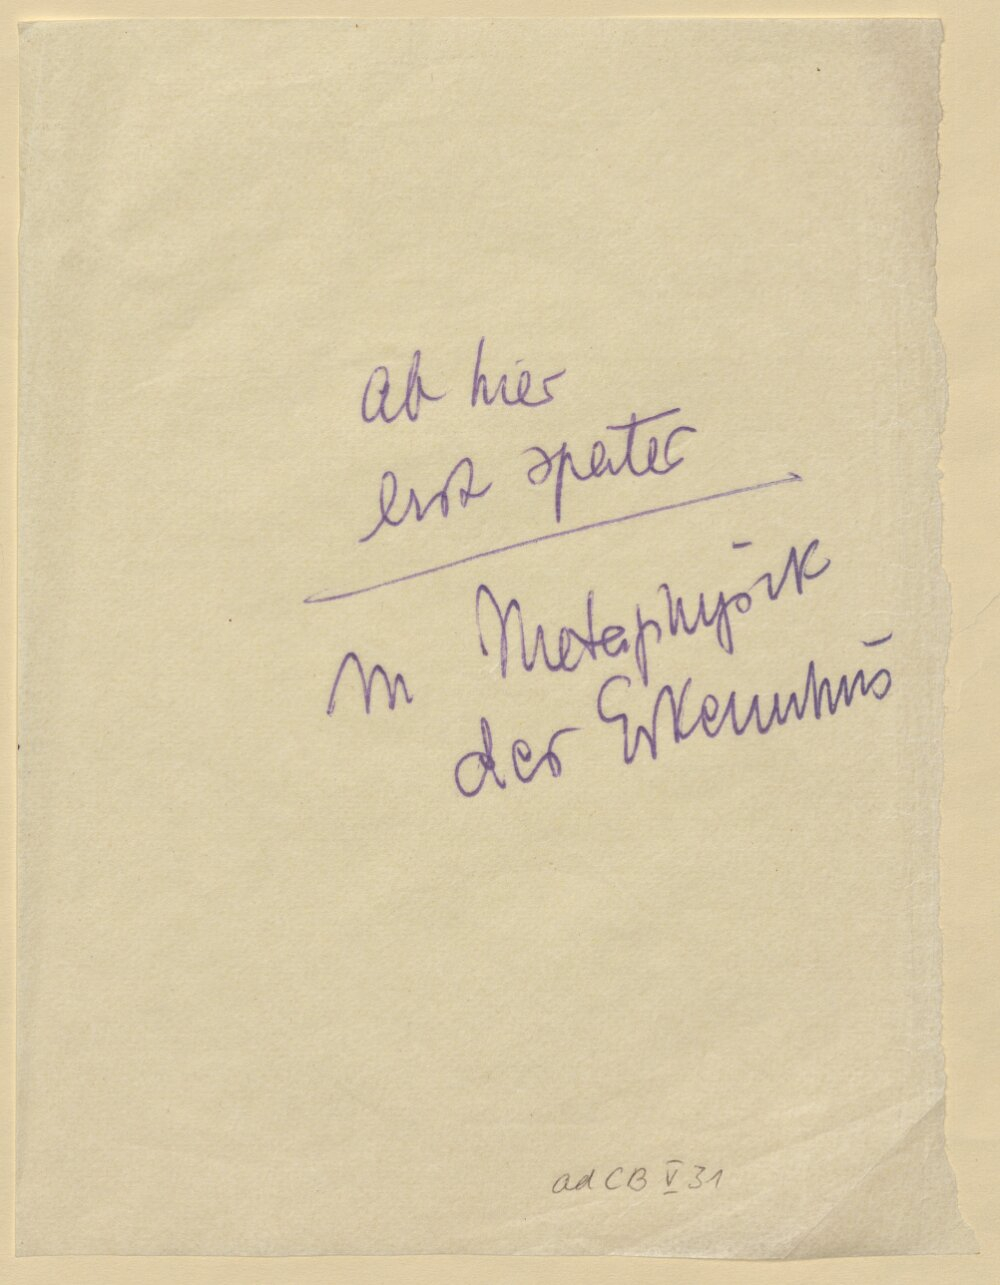 Ab hier
erst später
in Metaphysik
der Erkenntnis
ad CB V 31